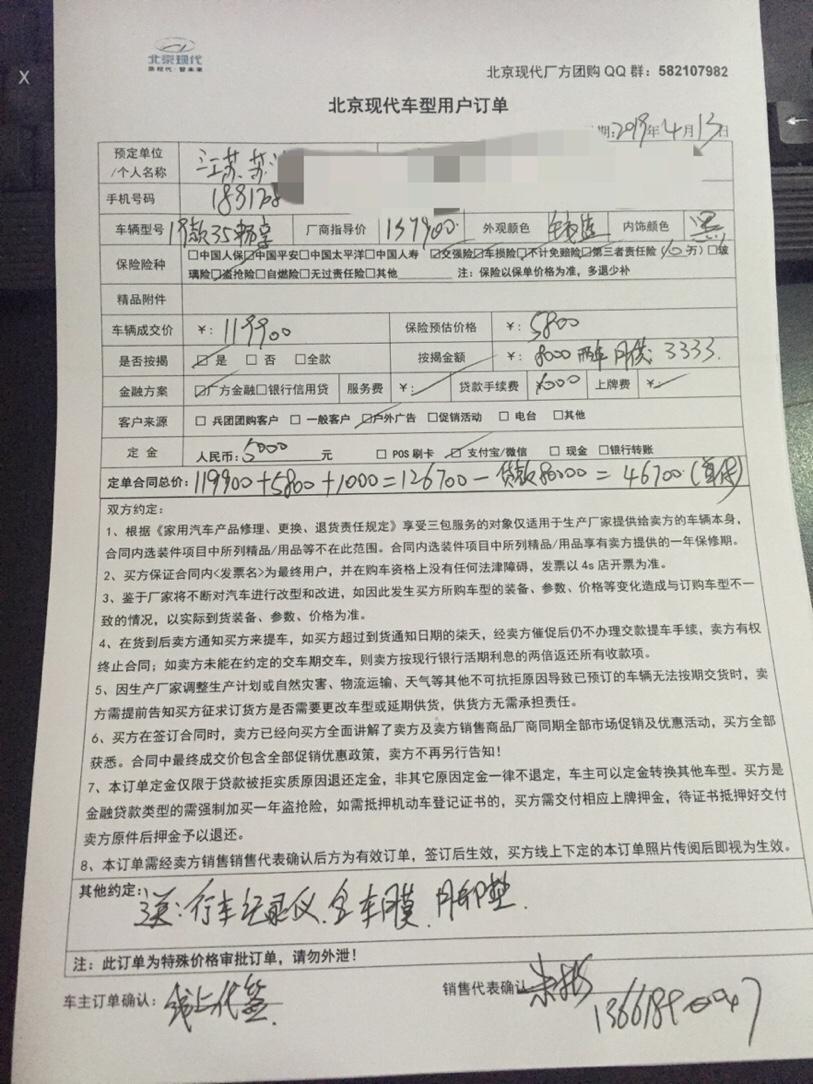 X
北京现代
北京现代厂方团购 QQ 群：582107982
北京现代车型用户订单
期:2019年4月13日
预定单位/个人名称 江苏.苏
手机号码
车辆型号 厂商指导价 137900 外观颜色 内饰颜色 黑
保险险种 □中国人保□中国平安□中国太平洋□中国人寿 □交强险□车损险□不计免赔险□第三者责任险( 万）□玻
璃险□盗抢险□自燃险□无过责任险□其他 注：保险以保单价格为准，多退少补
精品附件
车辆成交价 ¥：119900 保险预估价格 ¥：5800
是否按揭 □是 □否 □全款 按揭金额 ¥：8000 两年 月供:3333.
金融方案 □厂方金融□银行信用贷 服务费 ¥： 贷款手续费 ¥1000 上牌费 ¥：
客户来源 □ 兵团团购客户 □ 一般客户 □户外广告 □促销活动 □ 电台 □其他
定 金 人民币：5000 元 □ POS 刷卡 □ 支付宝/微信 □ 现金 □银行转账
定单合同总价：119900+5800+1000=126700-贷款80000=46700(首付)
双方约定：
1、根据《家用汽车产品修理、更换、退货责任规定》享受三包服务的对象仅适用于生产厂家提供给卖方的车辆本身，
合同内选装件项目中所列精品/用品等不在此范围。合同内选装件项目中所列精品/用品享有卖方提供的一年保修期。
2、买方保证合同内<发票名>为最终用户，并在购车资格上没有任何法律障碍，发票以 4s 店开票为准。
3、鉴于厂家将不断对汽车进行改型和改进，如因此发生买方所购车型的装备、参数、价格等变化造成与订购车型不一
致的情况，以实际到货装备、参数、价格为准。
4、在货到后卖方通知买方来提车，如买方超过到货通知日期的柒天，经卖方催促后仍不办理交款提车手续，卖方有权
终止合同；如卖方未能在约定的交车期交车，则卖方按现行银行活期利息的两倍返还所有收款项。
5、因生产厂家调整生产计划或自然灾害、物流运输、天气等其他不可抗拒原因导致已预订的车辆无法按期交货时，卖
方需提前告知买方征求订货方是否需要更改车型或延期供货，供货方无需承担责任。
6、买方在签订合同时，卖方已经向买方全面讲解了卖方及卖方销售商品厂商同期全部市场促销及优惠活动，买方全部
获悉。合同中最终成交价包含全部促销优惠政策，卖方不再另行告知！
7、本订单定金仅限于贷款被拒实质原因退还定金，非其它原因定金一律不退定，车主可以定金转换其他车型。买方是
金融贷款类型的需强制加买一年盗抢险，如需抵押机动车登记证书的，买方需交付相应上牌押金，待证书抵押好交付
卖方原件后押金予以退还。
8、本订单需经卖方销售销售代表确认后方为有效订单，签订后生效，买方线上下定的本订单照片传阅后即视为生效。
其他约定： 送:行车记录仪.全车膜.脚垫.
注：此订单为特殊价格审批订单，请勿外泄！
车主订单确认：线上代签 销售代表确认